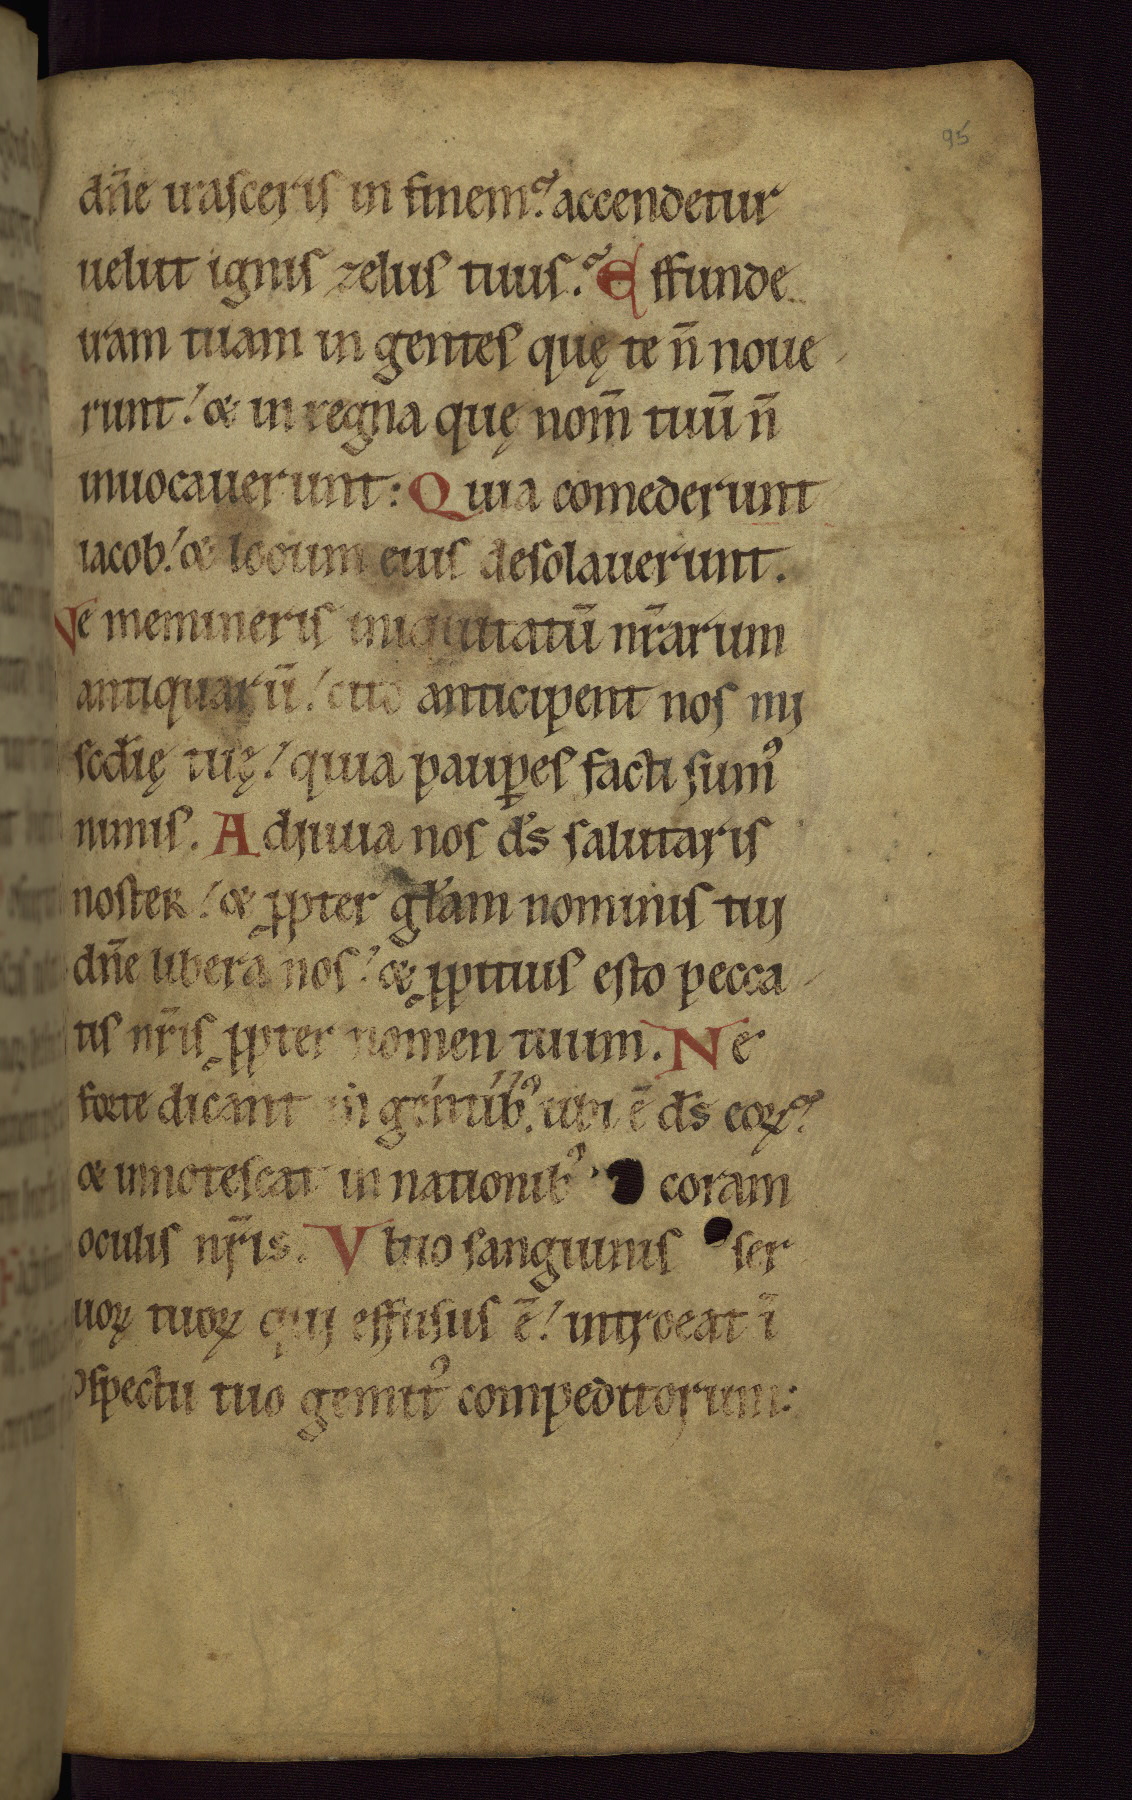 95
dn̄e irasceris in finem? accendetur
uelut ignis zelus tuus? Effunde
iram tuam in gentes quę te n̄ noue
runt! & in regna quę nom̄ tuū n̄
inuocauerunt: Quia comederunt
iacob! & locum eius desolauerunt.
Ne memineris iniquitatū nr̄arum
antiquarū! cito anticipent nos mi
scd̄ię tuę! quia paup̱es facti sumꝰ
nimis. Adiuua nos ds̄ salutaris
noster! & ꝓpter gl̄am nominis tui
dn̄e libera nos! & ꝓpitius esto pecca
tis nr̄is ꝓpter nomen tuum. Ne
forte dicant in gentibꝰ. ubi ē ds̄ eoꝝ?
& innotescat in nationibꝰ coram
oculis nr̄is. Vltio sanguinis ser
uoꝝ tuoꝝ qui effusus ē! introeat ī
ꝯspectu tuo gemitꝰ compeditorum: